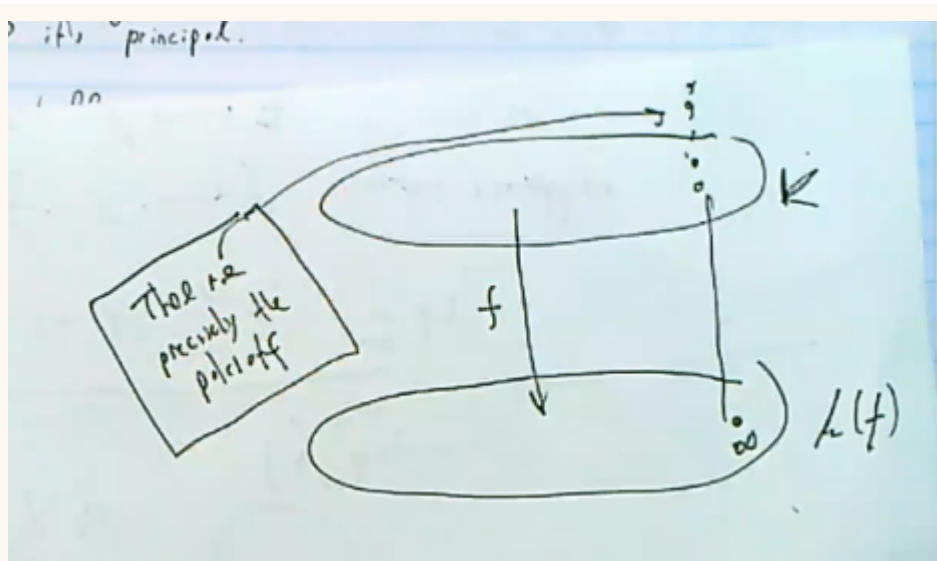 it's principal.
These are
precisely the
poles of f
K
f
k(f)
∞